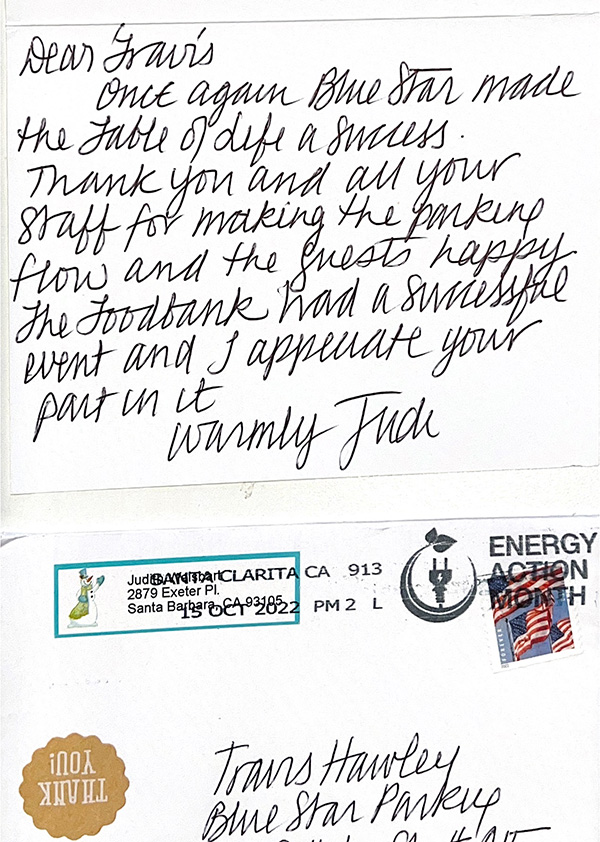 Dear Travis
Once again Blue Star made
the Table of Life a success.
Thank you and all your
staff for making the parking
flow and the guests happy
The Foodbank had a successful
event and I appreciate your
part in it
Warmly Jude
SANTA CLARITA CA 913
15 OCT 2022 PM 2 L
ENERGY
ACTION
MONTH
2879 Exeter Pl.
Santa Barbara, CA 93105
FOREVER
THANK
YOU!
Travis Hawley
Blue Star Parking